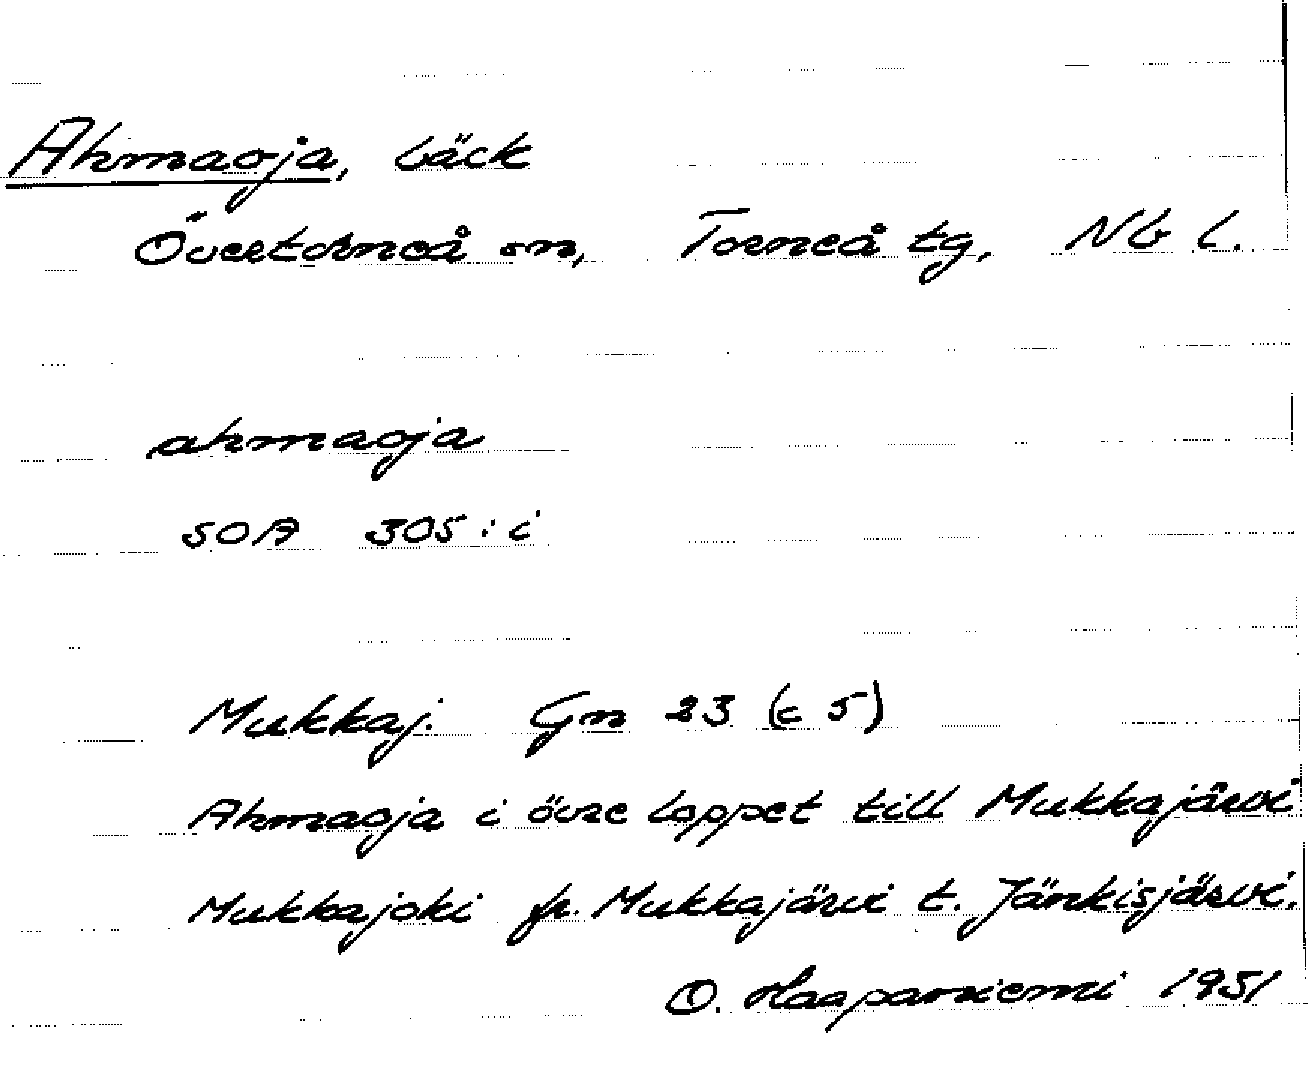 Ahmaoja, bäck
Övertorneå sn, Torneå tg, Nb l.
ahmaoja
SOA 305:i
Mukkaj. Gn 23 (c 5)
Ahmaoja i övre loppet till Mukkajärvi
Mukkajoki fr. Mukkajärvi t. Jänkisjärvi.
O. Haapaniemi 1951